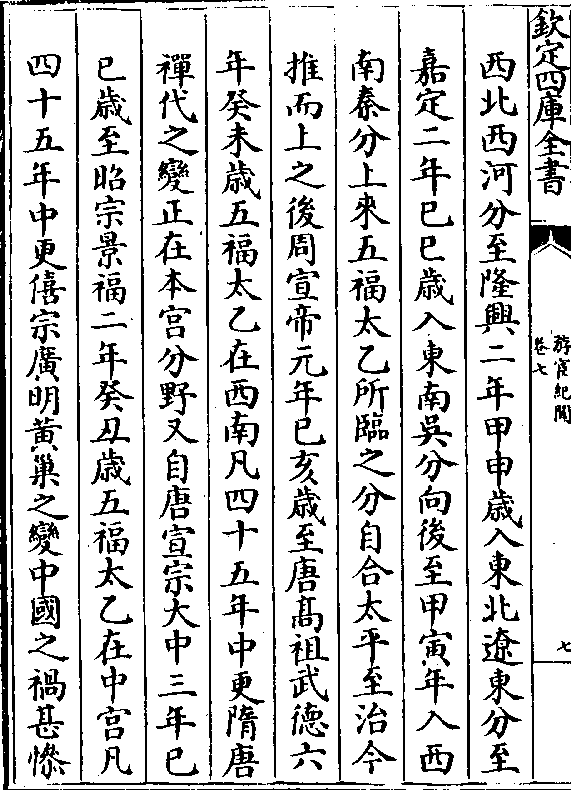 欽定四庫全書
游宦紀聞
卷七
七
西北西河分至隆興二年甲申歲入東北遼東分至
嘉定二年巳巳歲入東南吳分向後至甲寅年入西
南秦分上來五福太乙所臨之分自合太平至治今
推而上之後周宣帝元年巳亥歲至唐髙祖武德六
年癸未歲五福太乙在西南凡四十五年中更隋唐
禪代之變正在本宮分野又自唐宣宗大中三年巳
巳歲至昭宗景福二年癸丑歲五福太乙在中宮凡
四十五年中更僖宗廣明黄巢之變中國之禍甚慘